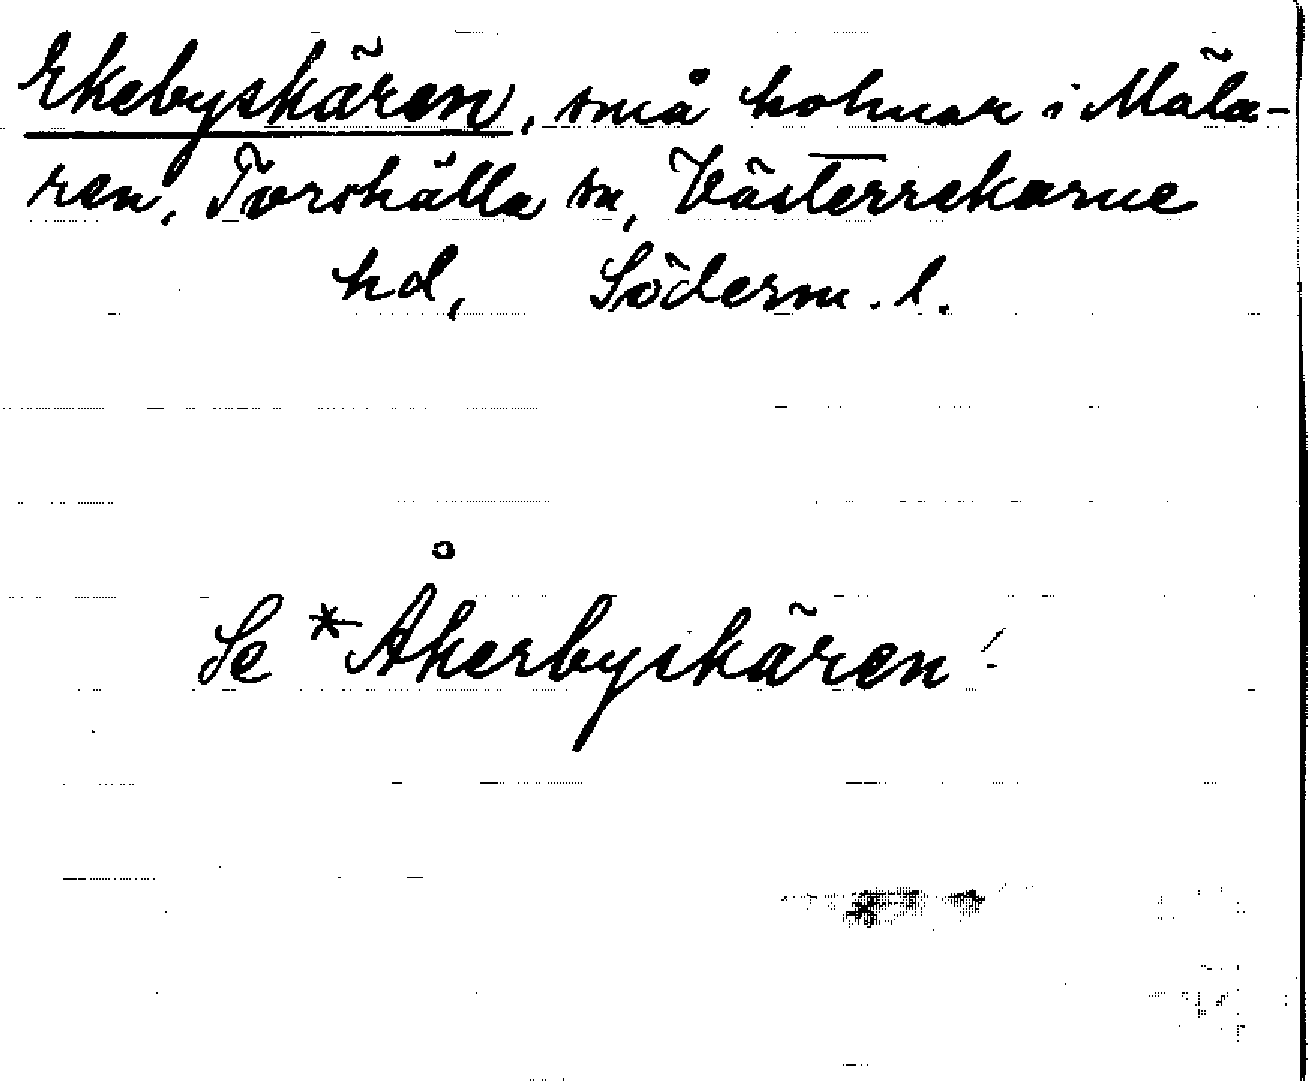 Ekebyskären, små holmar i Mäla-
ren, Torshälla sn, Västerrekarne
hd, Söderm. l.
Se *Åkerbyskären!